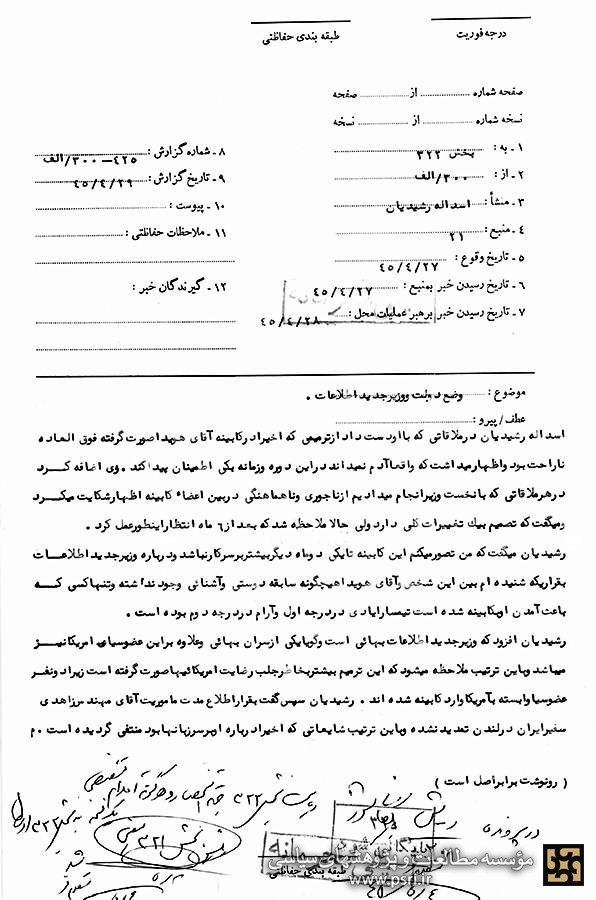 درجه فوریت
طبقه بندی حفاظتی
صفحه شماره از صفحه
نسخه شماره از نسخه
۱ـ به : بخش ۳۲۲
۲ـ از : ۳۰۰/الف
۳ـ منشأ : اسداله رشیدیان
۴ـ منبع : ۲۱
۵ـ تاریخ وقوع : ۴۵/۴/۲۷
۶ـ تاریخ رسیدن خبر بمنبع : ۴۵/۴/۲۷
۷ـ تاریخ رسیدن خبر برهبر عملیات محل : ۴۵/۴/۲۸
۸ـ شماره گزارش : ۴۲۵ــ۳۰۰/الف
۹ـ تاریخ گزارش : ۴۵/۴/۲۹
۱۰ـ پیوست :
۱۱ـ ملاحظات حفاظتی :
۱۲ـ گیرندگان خبر :
موضوع : وضع دولت ووزیرجدید اطلاعات .
عطف/ پیرو :
اسداله رشیدیان درملاقاتی که بااودست داد ازترمیمی که اخیراد رکابینه آقای هویدا صورت گرفته فوق العاده
ناراحت بود واظهارمیداشت که واقعاآدم نمیداند دراین دوره وزمانه بکی اطمینان پیداکند .وی اضافه کـــرد
درهرملاقاتی که بانخست وزیرانجام میدادیم ازناجوری وناهماهنگی دربین اعضاء کابینه اظهارشکایت میکـرد
ومیگفت که تصمیم بیک تغییرات کلی دارد ولی حالا ملاحظه شد که بعد از ۶ ماه انتظاراینطورعمل کرد .
رشیدیان میگفت که من تصورمیکنم این کابینه تایکی دوماه دیگربیشتربرسرکارنباشد ودرباره وزیرجدید اطلاعــات
بقراریکه شنیده ام بین این شخص وآقای هویدا هیچگونه سابقه دوستی وآشنائی وجود نداشته وتنهاکسی کــه
باعث آمدن اوبکابینه شده است تیمسارایادی دردرجه اول وآرام دردرجه دوم بوده است .
رشیدیان افزود که وزیرجدید اطلاعات بهائی است وگویایکی ازسران بهائی وعلاوه براین عضوسیای امریکانیـــز
میباشد وباین ترتیب ملاحظه میشود که این ترمیم بیشتربخاطرجلب رضایت امریکائیهاصورت گرفته است زیرادونفر
عضوسیاوابسته بآمریکاوارد کابینه شده اند . رشیدیان سپس گفت بقراراطلاع مدت ماموریت آقای مهندس زاهدی
سفیرایران درلندن تمدید نشده وباین ترتیب شایعاتی که اخیراد رباره اوبرسرزبانهابود منتفی گردیده است .م
( رونوشت برابراصل است )
در پرونده
بایگانی شود
طبقه بندی حفاظتی
مؤسسه مطالعات و پژوهشهای سیاسی
www.psri.ir